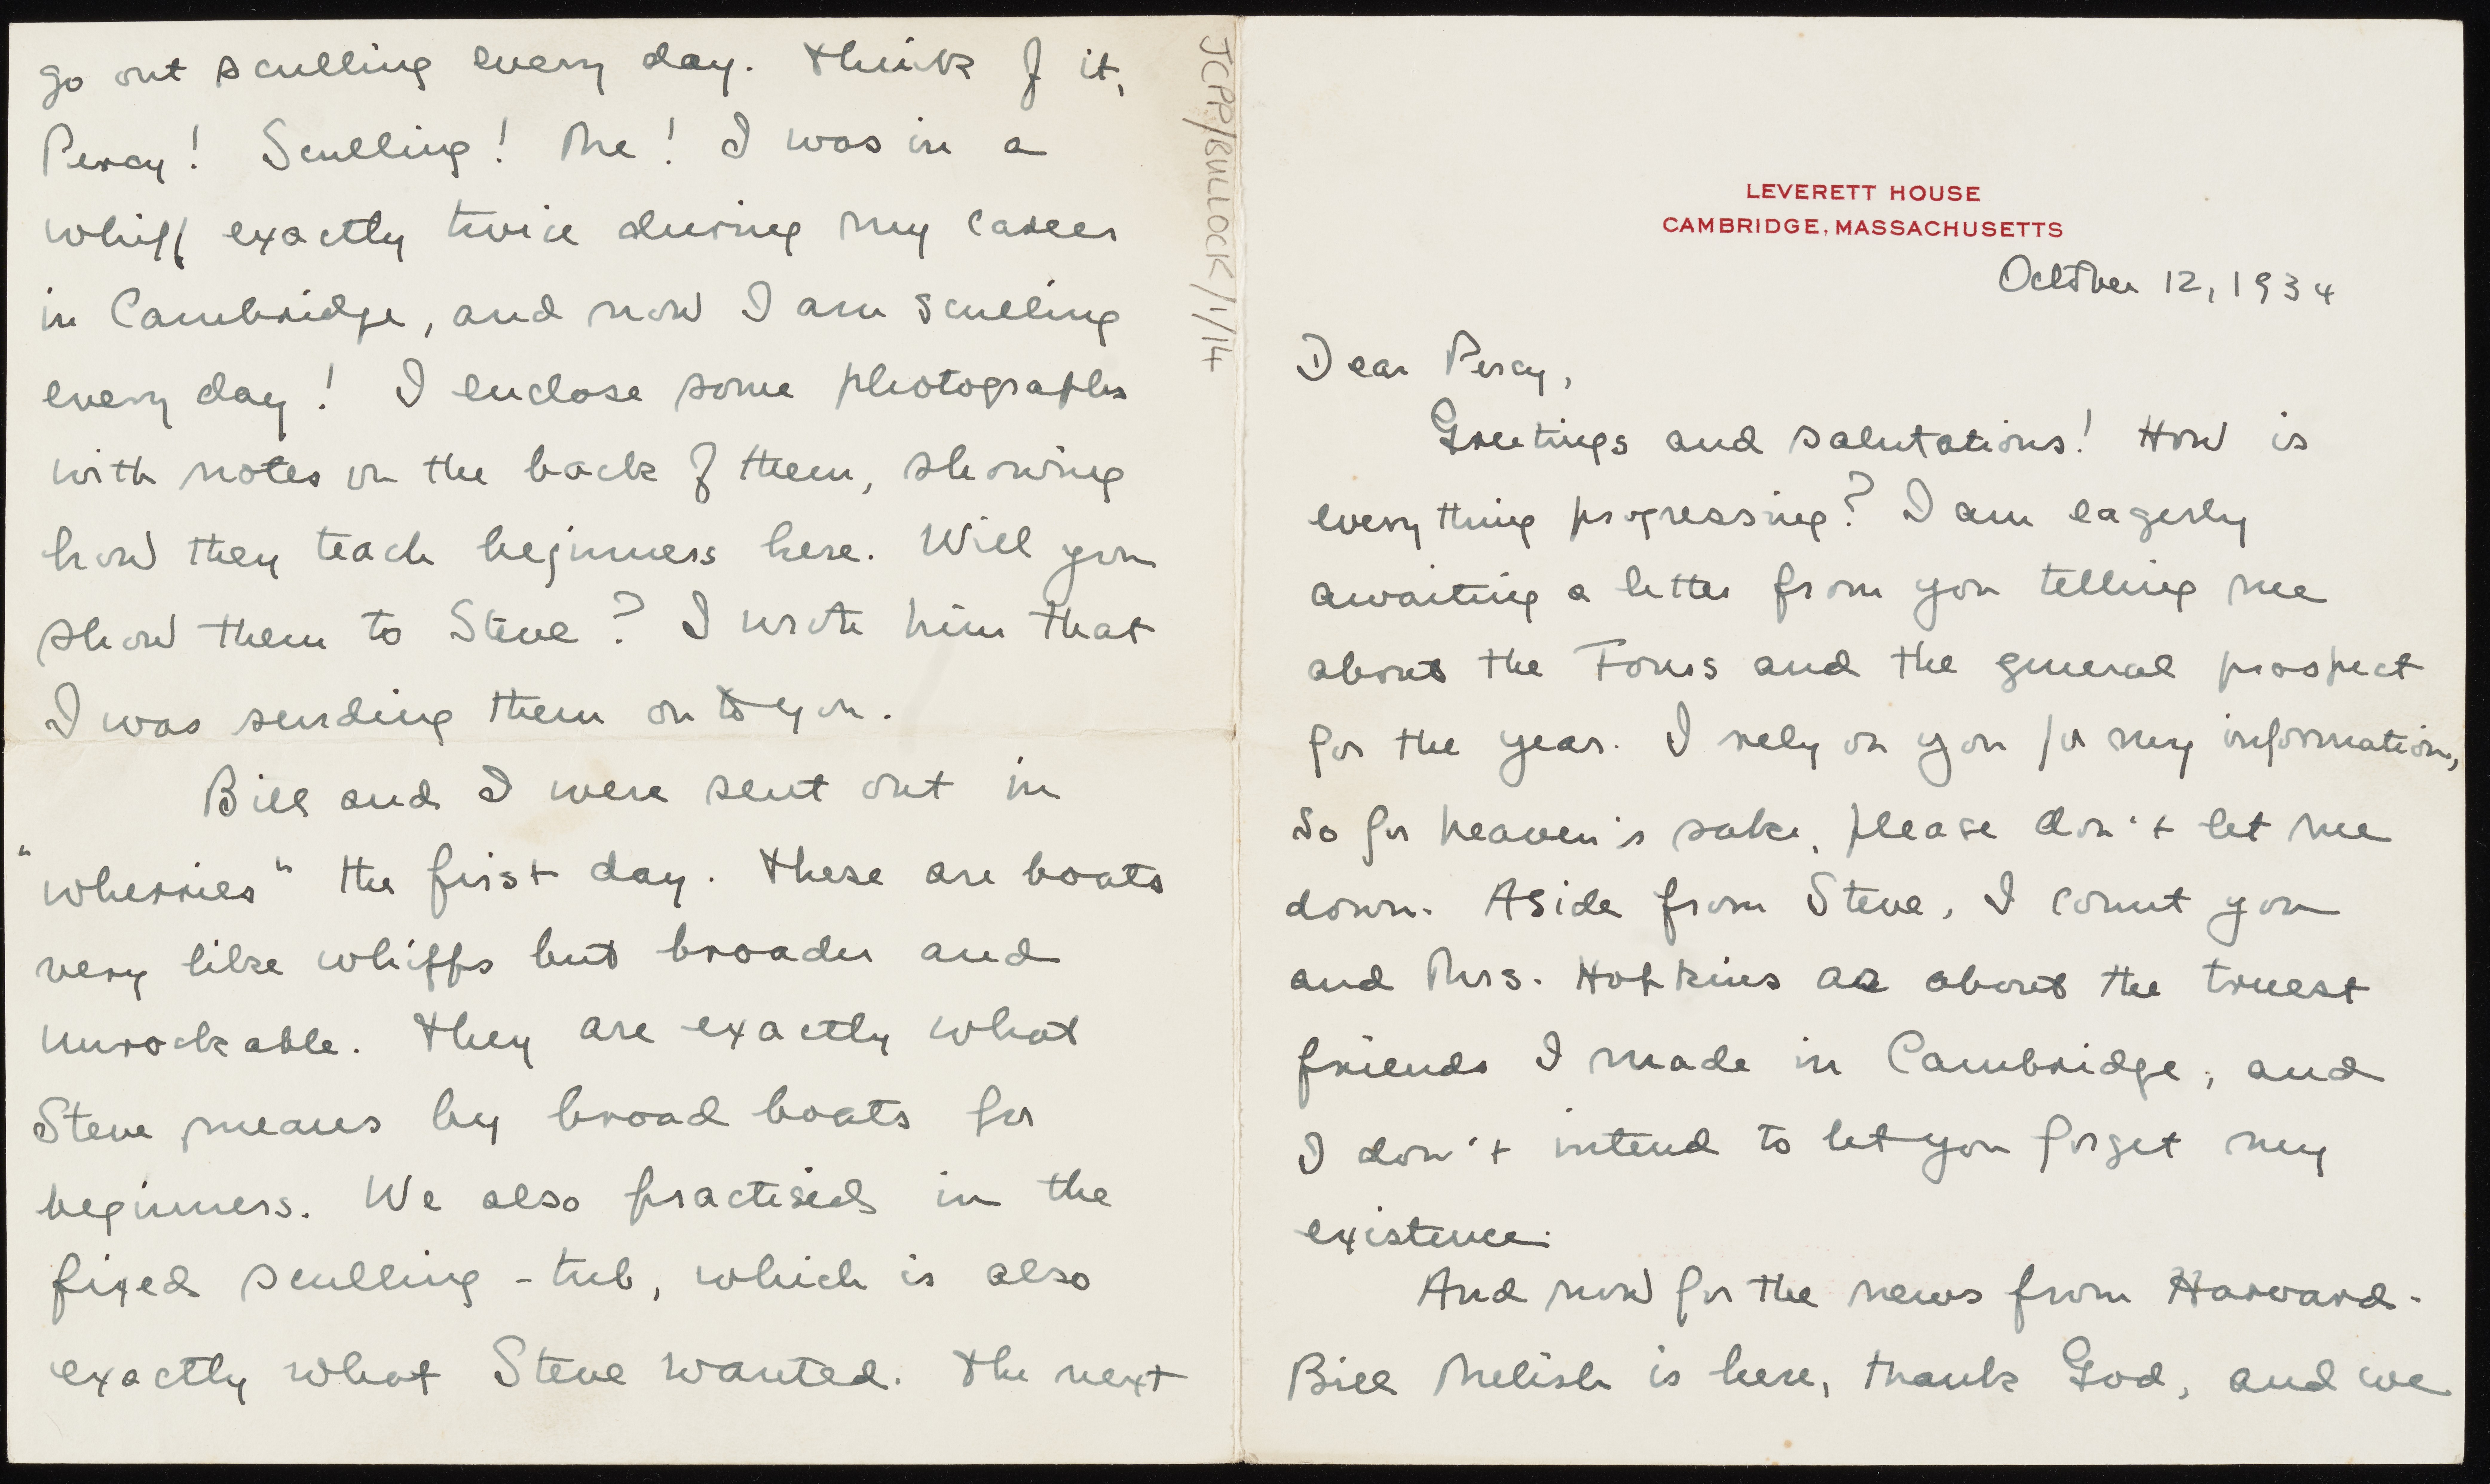 LEVERETT HOUSE
CAMBRIDGE, MASSACHUSETTS
October 12, 1934
Dear Percy,
Greetings and salutations! How is
everything progressing? I am eagerly
awaiting a letter from you telling me
about the Fours and the general prospect
for the year. I rely on you for my information,
so for heaven's sake, please don't let me
down. Aside from Steve, I count you
and Mrs. Hopkins as about the truest
friends I made in Cambridge, and
I don't intend to let you forget my
existence.
And now for the news from Harvard.
Bill Melish is here, thank God, and we
go out sculling every day. Think of it,
Percy! Sculling! Me! I was in a
whiff exactly twice during my career
in Cambridge, and now I am sculling
every day! I enclose some photographs
with notes on the back of them, showing
how they teach beginners here. Will you
show them to Steve? I wrote him that
I was sending them on to you.
Bill and I were sent out in
"wherries" the first day. These are boats
very like whiffs but broader and
unrockable. They are exactly what
Steve means by broad boats for
beginners. We also practised in the
fixed sculling-tub, which is also
exactly what Steve wanted. The next
JCPP/BULLOCK/1/14